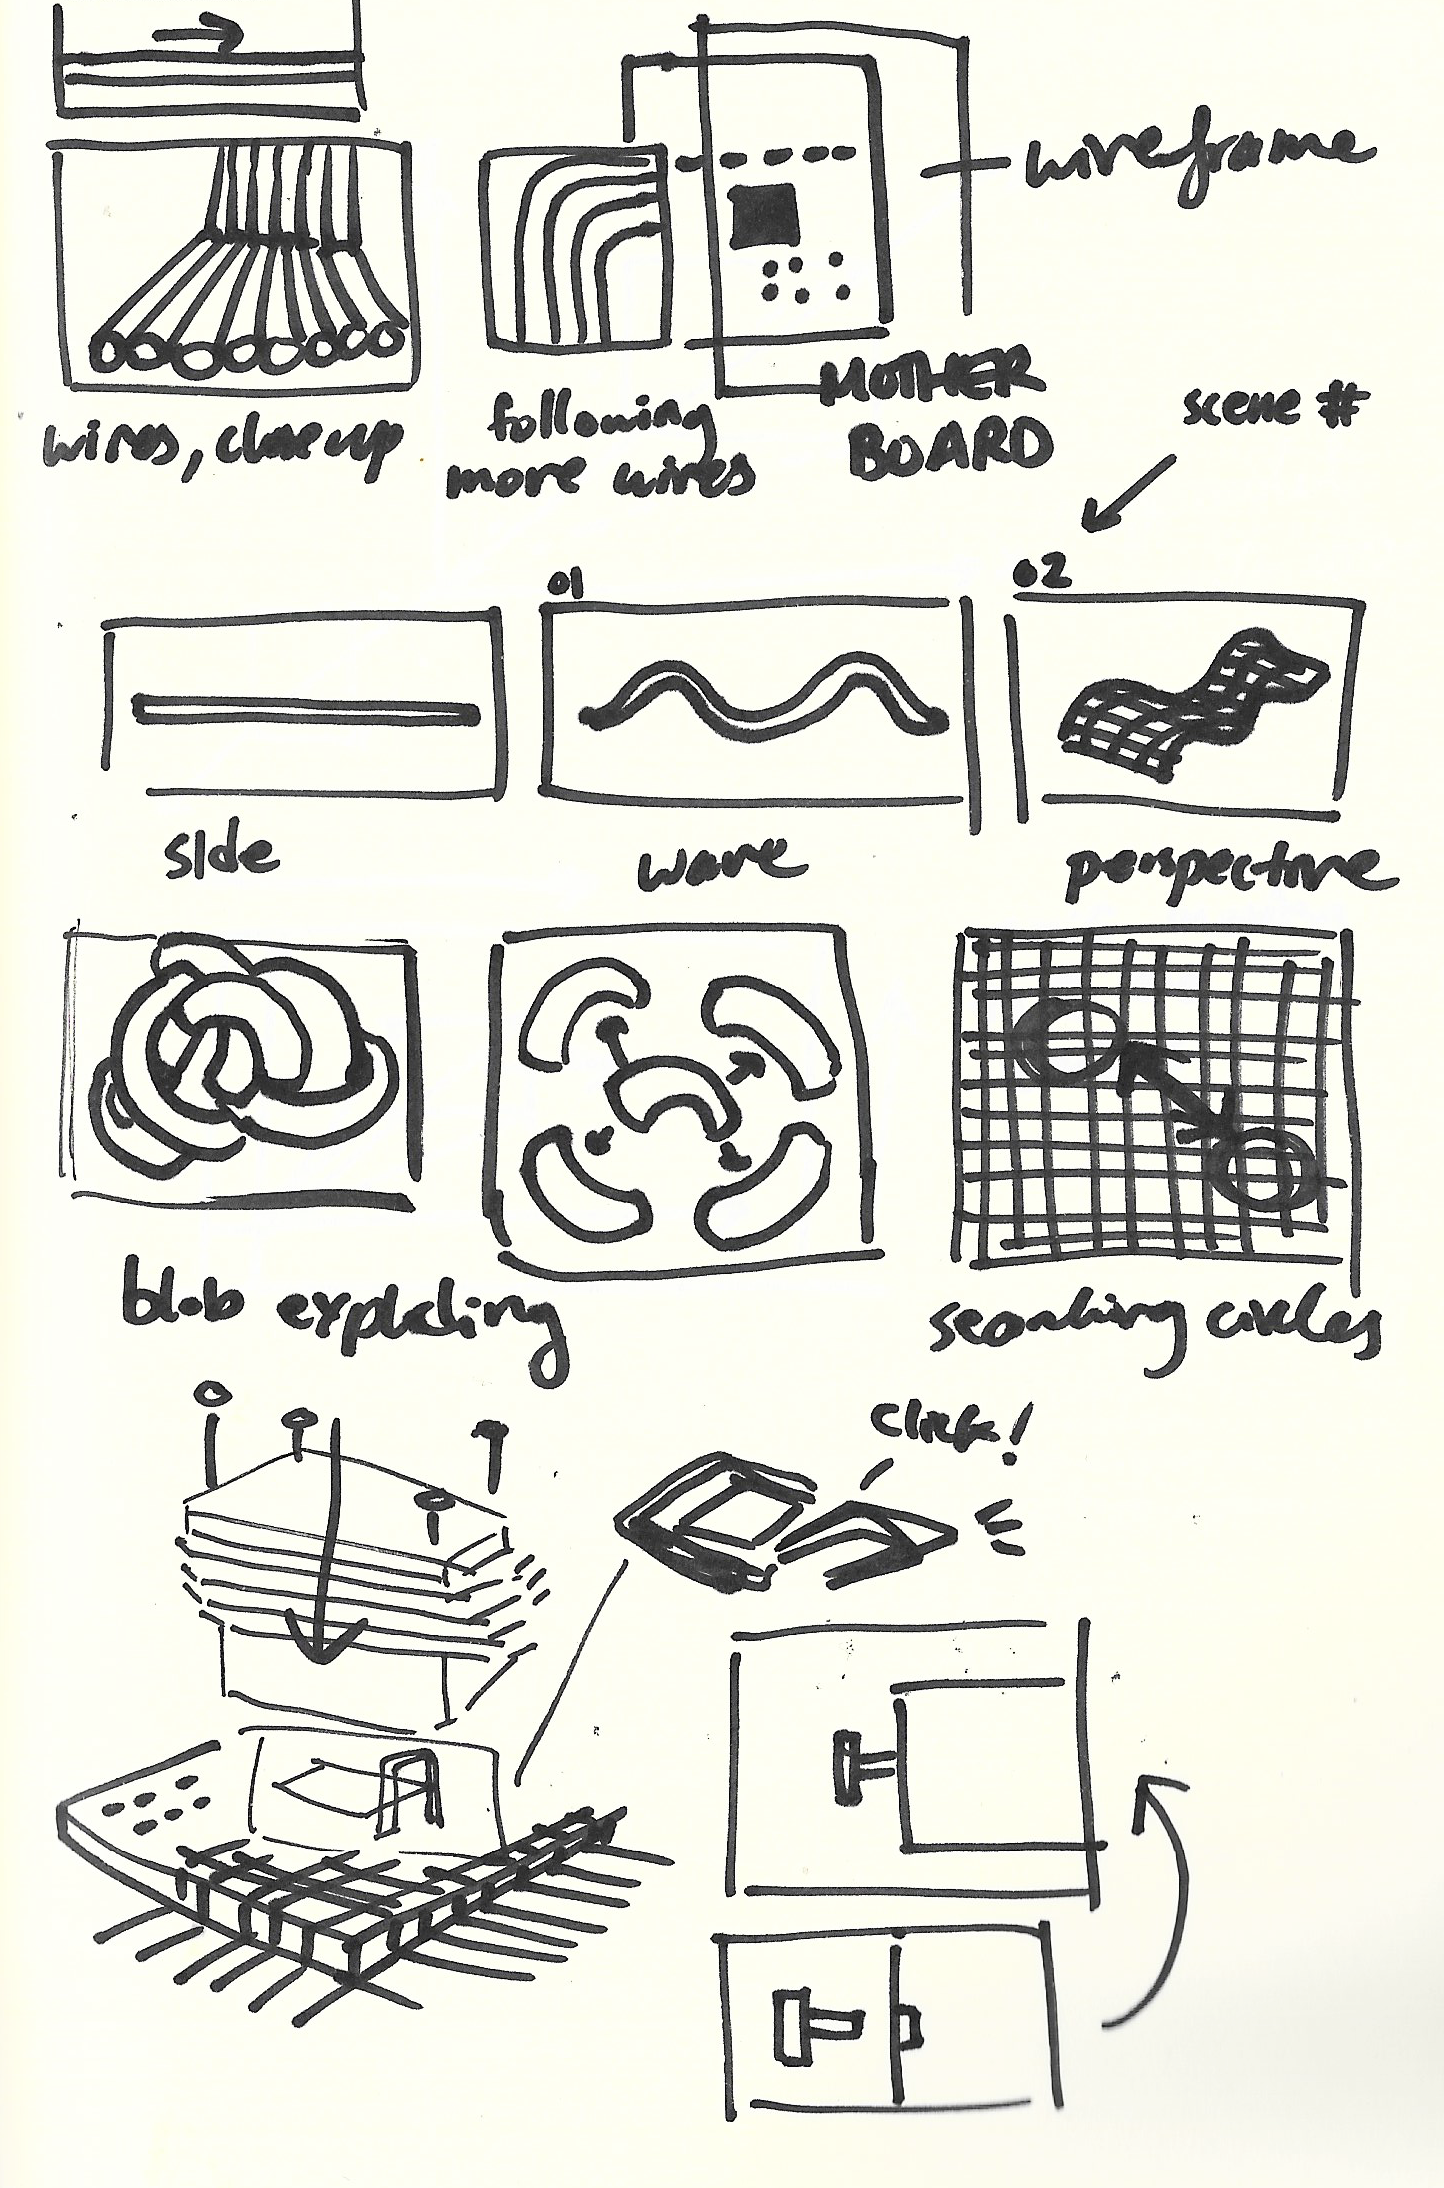 wireframe
wires, close up
following
more wires
MOTHER
BOARD
scene #
01
02
side
wave
perspective
blob exploding
searching circles
click!